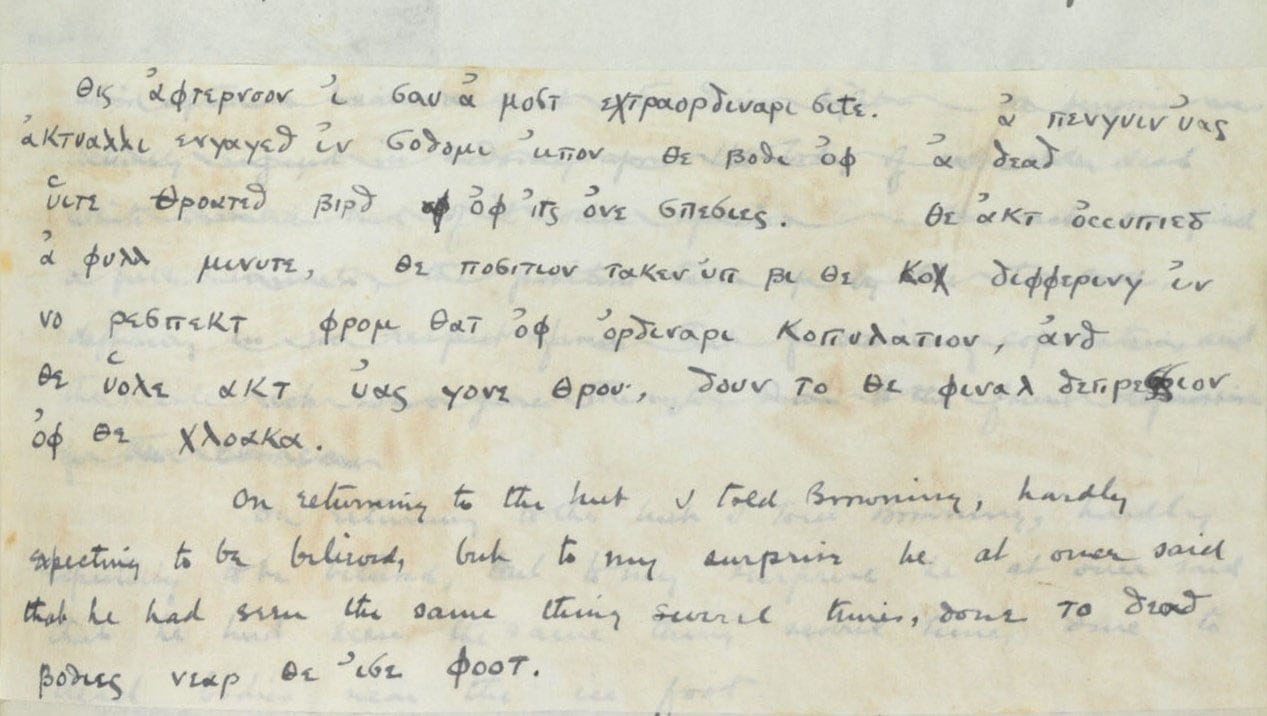 θις ἀφτερνσον ἰ σαυ ἀ μοστ εχτραορδιναρι σιτε. ἀ πενγυιν ὐας
ἀκτυαλλι ενγαγεδ ἰν σοδομι ὐπον θε βοδι ὀφ ἀ δεαδ
ὑιτε θροατεδ βιρδ ὀφ ἰτς ὀνε σπεσιες. θε ἀκτ ὀccυπιεδ
ἀ φυλλ μινυτε, θε ποσιτιον τακεν ὐπ βι θε κοχ διφφερινγ ἰν
νο ρεσπεκτ φρομ θατ ὀφ ὀρδιναρι κοπυλατιον, ἀνδ
θε ὑολε ακτ ὐας γονε θρου, δουν το θε φιναλ δεπρεσσιον
ὀφ θε χλοακα.
On returning to the hut I told Browning, hardly
expecting to be believed, but to my surprise he at once said
that he had seen the same thing several times, δονε το δεαδ
βοδιες νεαρ θε ἰσε φοοτ.